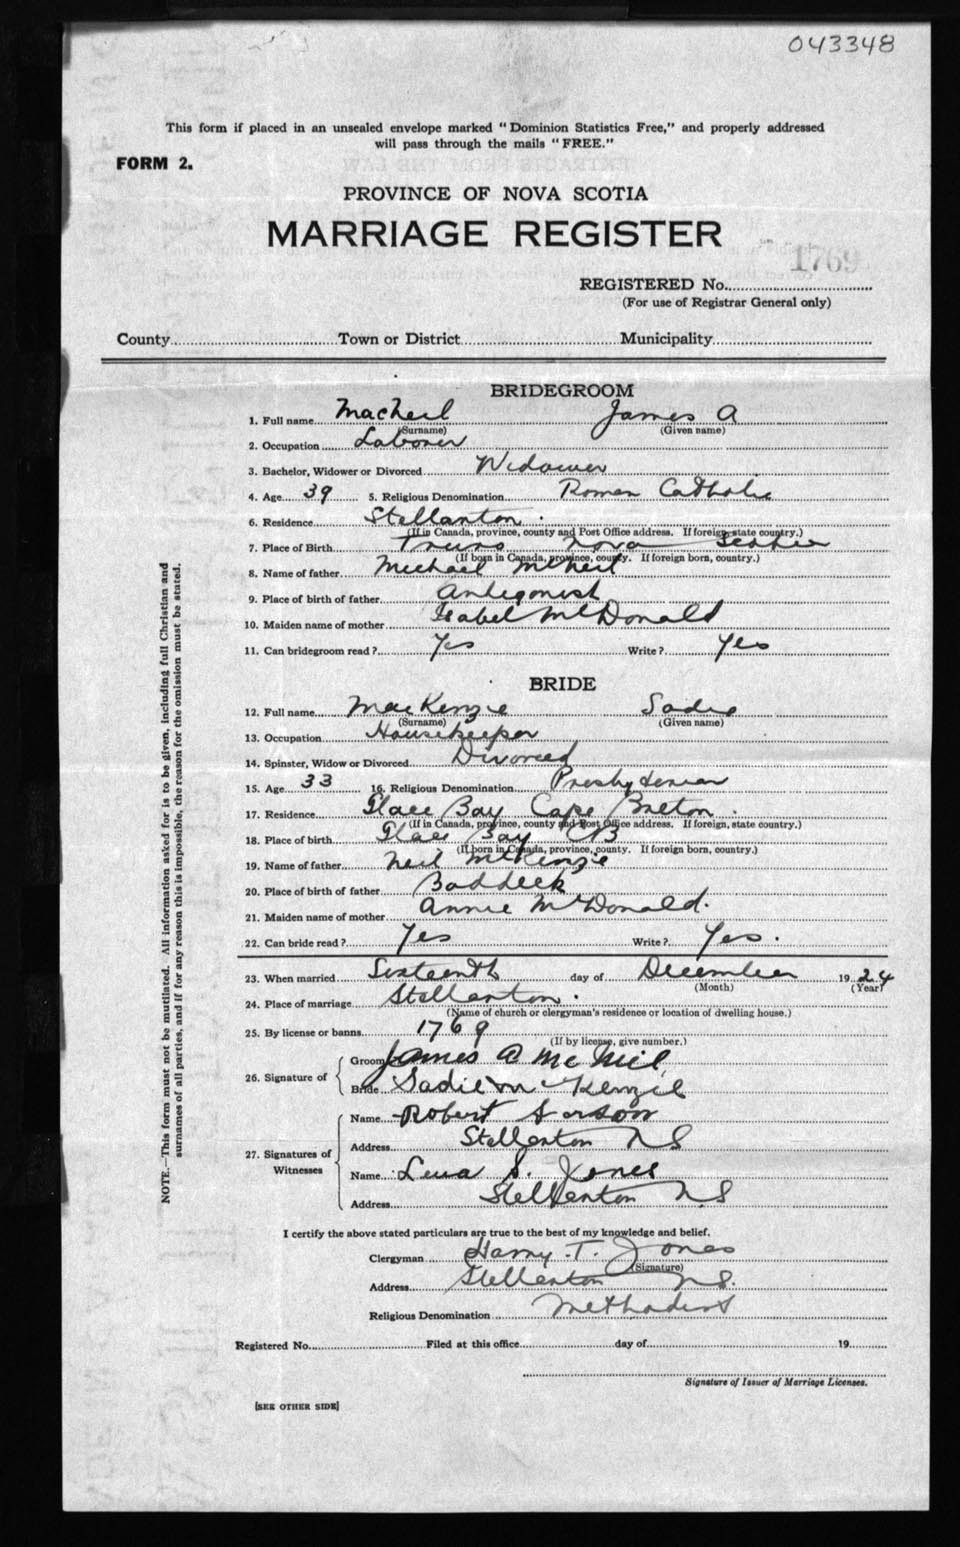 043348
This form if placed in an unsealed envelope marked "Dominion Statistics Free," and properly addressed
will pass through the mails "FREE."
FORM 2.
PROVINCE OF NOVA SCOTIA
MARRIAGE REGISTER
1769
REGISTERED No.
(For use of Registrar General only)
County Town or District Municipality
BRIDEGROOM
1. Full name MacNeil James A
(Surname) (Given name)
2. Occupation Laborer
3. Bachelor, Widower or Divorced Widower
4. Age 39 5. Religious Denomination Roman Catholic
6. Residence Stellarton
(If in Canada, province, county and Post Office address. If foreign, state country.)
7. Place of Birth Truro Nova Scotia
(If born in Canada, province, county. If foreign born, country.)
8. Name of father Michael McNeil
9. Place of birth of father Antegonish
10. Maiden name of mother Isabel McDonald
11. Can bridegroom read? Yes Write? Yes
BRIDE
12. Full name MacKenzie Sadie
(Surname) (Given name)
13. Occupation Housekeeper
14. Spinster, Widow or Divorced Divorced
15. Age 33 16. Religious Denomination Presbyterian
17. Residence Glace Bay Cape Breton
(If in Canada, province, county and Post Office address. If foreign, state country.)
18. Place of birth Glace Bay CB
(If born in Canada, province, county. If foreign born, country.)
19. Name of father Neil McKenzie
20. Place of birth of father Baddeck
21. Maiden name of mother Annie McDonald.
22. Can bride read? Yes Write? Yes.
23. When married Sixteenth day of December 1924
(Month) (Year)
24. Place of marriage Stellarton.
(Name of church or clergyman's residence or location of dwelling house.)
25. By license or banns 1769
(If by license, give number.)
26. Signature of
Groom James A McNeil
Bride Sadie McKenzie
27. Signatures of Witnesses
Name Robert
Address Stellarton NS
Name Lena S. Jones
Address Stellarton NS
I certify the above stated particulars are true to the best of my knowledge and belief.
Clergyman Harry T. Jones
(Signature)
Address Stellarton N.S.
Religious Denomination Methodist
Registered No. Filed at this office day of 19
Signature of Issuer of Marriage Licenses.
[SEE OTHER SIDE]
NOTE.—This form must not be mutilated. All information asked for is to be given, including full Christian and
surnames of all parties, and if for any reason this is impossible, the reason for the omission must be stated.